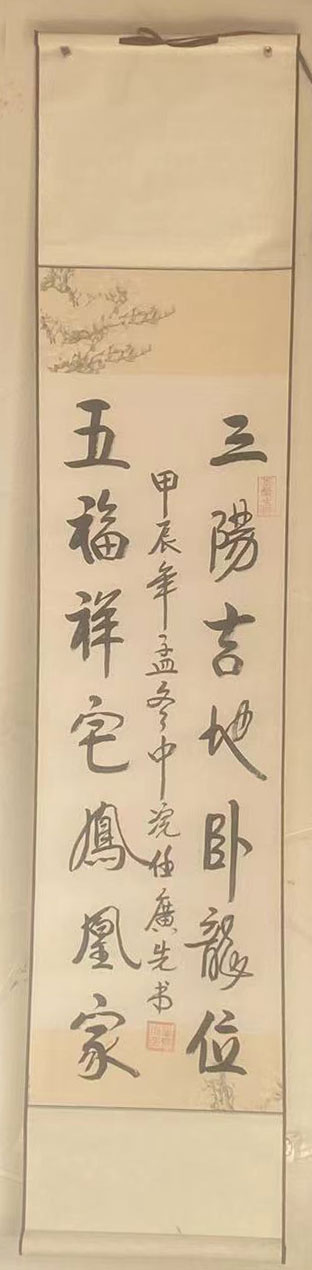 三陽吉地卧龍位
甲辰年孟冬中浣任廣先书
五福祥宅鳳凰家